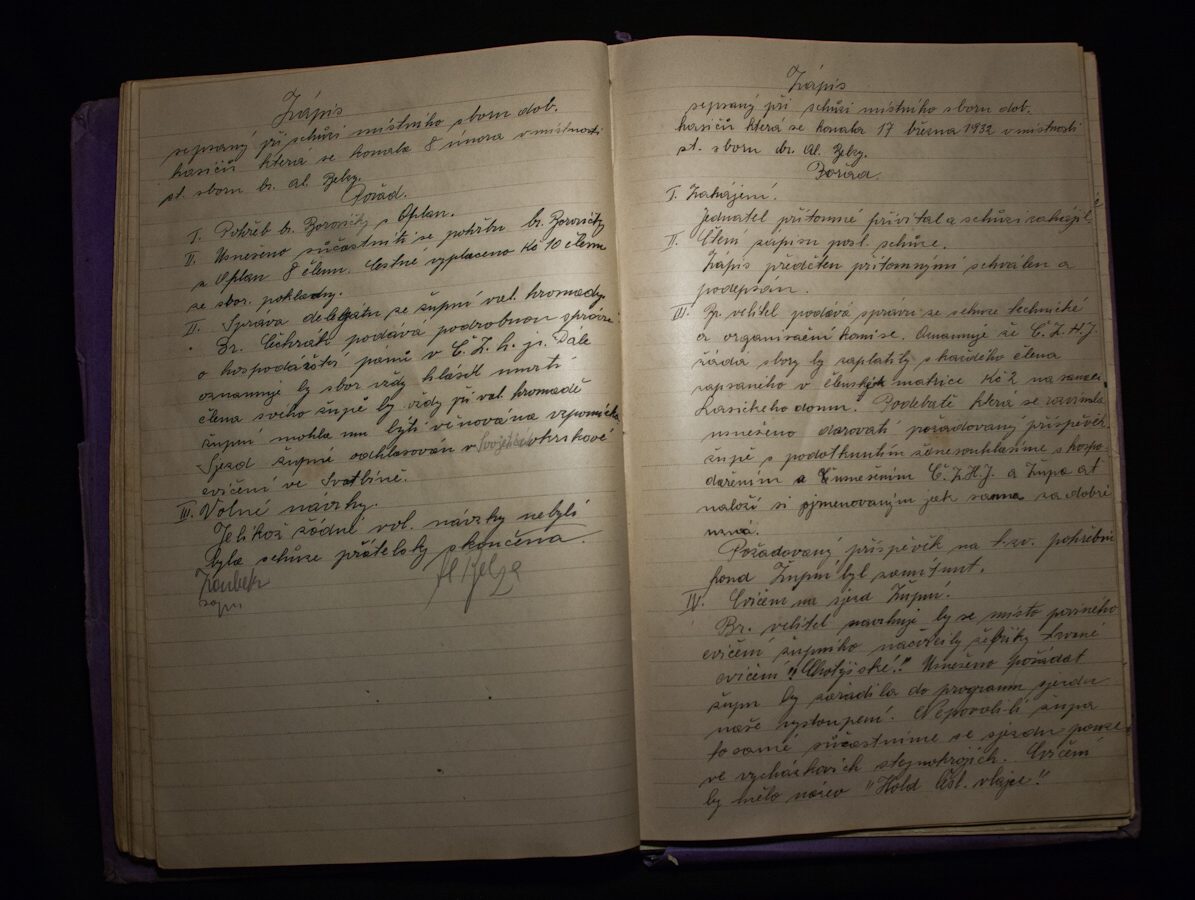 Zápis
sepsaný při schůzi místního sboru dob.
hasičů která se konala 8 února v místnosti
st. sboru br. Al. Zelzy.
Pořad.
I. Pohřeb br. Borovičky z Oplan.
II. Usneseno súčastniti se pohřbu br. Borovičky
z Oplan 8 členu. Cestné vyplaceno Kč 10 členu
ze sbor. pokladny.
II. Správa delegátu se župní val. hromady.
Br. Cihrák podává podrobnou zprávu
o hospodářství panů v Č. Z. h. js. Dále
oznamuje by sbor vždy hlásil umrtí
člena sveho župě by vždy při val. hromadě
župní mohla mu býti věnována vzpomínka
Sjezd župní odhlasován v okrskové
cvičení ve Svatbíně.
III. Volné návrhy.
Jelikož žádné vol. návrhy nebyli
byla schůze přátelsky skončena.
Koubek Al Zelza
zapis
Zápis
sepsaný při schůzi místního sboru dob.
hasičů která se konala 17 března 1932 v místnosti
st. sboru br. Al. Zelzy.
Pořad
I. Zahájení.
Jednatel přítomné přivítal a schůzi zahájil.
II. Čtení zápisu posl. schůze.
Zápis předčten přítomnými schválen a
podepsán.
III. Br. velitel podává správu ze schuze technické
a organisační komise. Oznamuje že Č. Z. H. J.
žádá sbory by zaplatily s každého člena
zapsaného v matrice Kč 2 na
Hasičkeho domu. Podebatě která se
usneseno darovati požadovaný příspěvěk
župě s podotknutím že nesouhlasíme s hospo-
dařením a usnešením Č. Z. H. J. a Župa ať
naloží si ojmenovaným jak sama za dobré
uzná.
Požadovaný příspěvěk na t. zv. pohřební
fond Župní byl zamítnut.
IV. Cvičení na sjezd Župní.
Br. velitel navrhuje by se místo prosného
cvičení župního nacvičily žebříky zvané
cvičení "Chotýšské!" Usneseno požádat
župu by zařadila do programu sjezdu
naše vystoupení. Nepovolí-li župa
to samé súčastníme se sjezdu pouze
ve vycházkových stejnokrojích. Cvičení
by mělo název "Hold čsl. vlajce!"